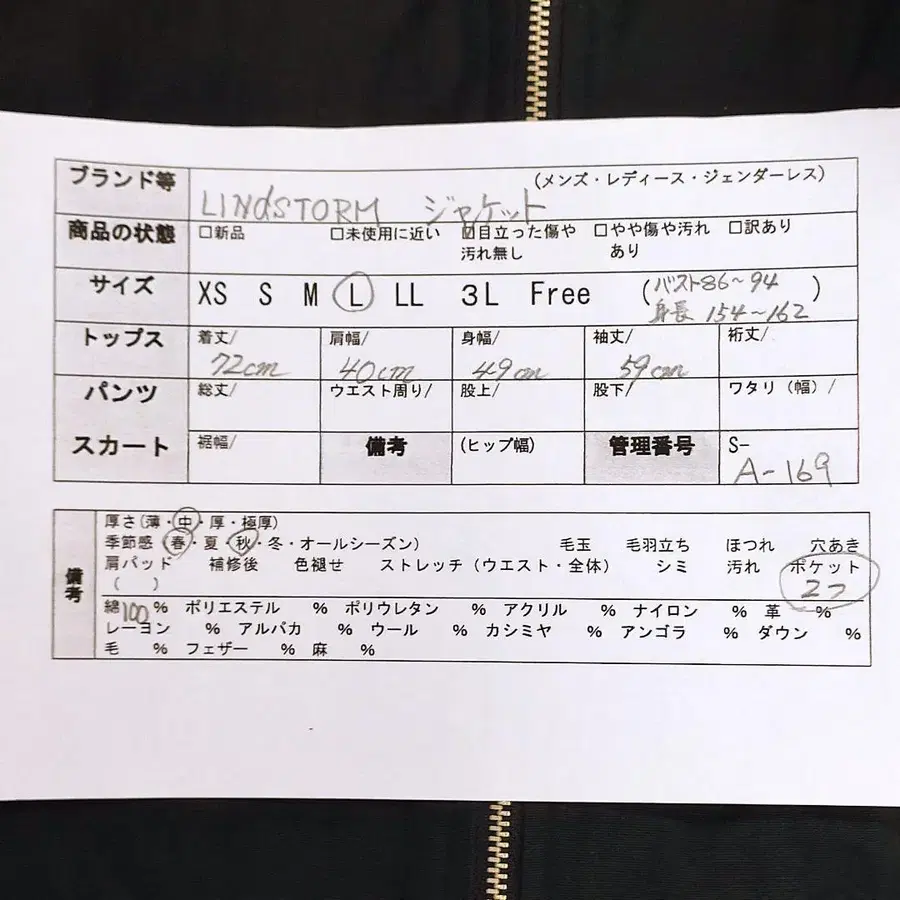 ブランド等 (メンズ・レディース・ジェンダーレス)
LINdSTORM ジャケット
商品の状態 □新品 □未使用に近い ☑目立った傷や汚れ無し □やや傷や汚れあり □訳あり
サイズ XS S M L LL 3L Free (バスト86〜94 身長 154〜162)
トップス 着丈/ 72cm 肩幅/ 40cm 身幅/ 49cm 袖丈/ 59cm 裄丈/
パンツ 総丈/ ウエスト周り/ 股上/ 股下/ ワタリ(幅)/
スカート 裾幅/ 備考 (ヒップ幅) 管理番号 S-
A-169
備考
厚さ(薄・中・厚・極厚)
季節感(春・夏・秋・冬・オールシーズン) 毛玉 毛羽立ち ほつれ 穴あき
肩パッド 補修後 色褪せ ストレッチ(ウエスト・全体) シミ 汚れ ポケット
( ) 2つ
綿100% ポリエステル % ポリウレタン % アクリル % ナイロン % 革 %
レーヨン % アルパカ % ウール % カシミヤ % アンゴラ % ダウン %
毛 % フェザー % 麻 %